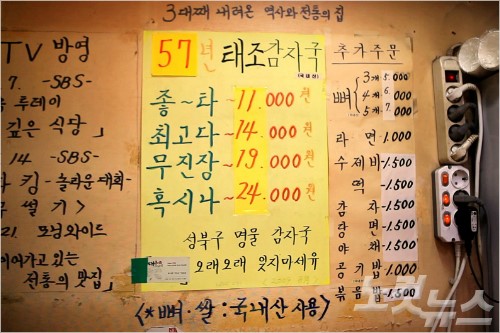 3대째 내려온 역사와 전통의 집
TV 방영
7. -SBS-
루데이
깊은 식당 」
14 -SBS-
킹 - 놀라운 대회-
썰기 >
21. 모닝와이드
이어가고 있는
전통의 맛집 」
57년 태조감자국
좋~타 ~ 11.000원
최고다 ~ 14.000원
무진장 ~ 19.000원
혹시나 ~ 24.000원
성북구 명물 감자국
오래오래 잊지마세유
<*뼈.쌀:국내산 사용>
추가주문
뼈 3개 5.000
4개 6.000
5개 7.000
라면 - 1.000
수제비 - 1.500
떡 - 1.500
감자 - 1.500
당면 - 1.500
야채 - 1.500
공기밥 - 1.000
볶음밥 - 1.500
노컷뉴스